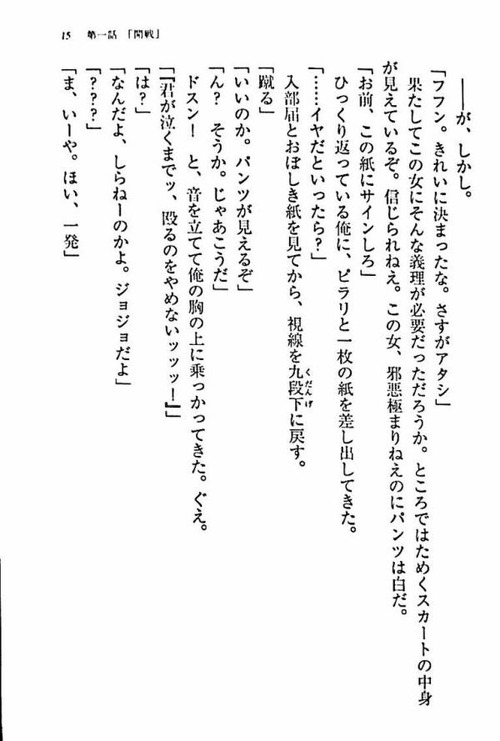 15　第一話　「開戦」
――が、しかし。
「フフン。きれいに決まったな。さすがアタシ」
果たしてこの女にそんな義理が必要だっただろうか。ところではためくスカートの中身
が見えているぞ。信じられねえ。この女、邪悪極まりねえのにパンツは白だ。
「お前、この紙にサインしろ」
ひっくり返っている俺に、ピラリと一枚の紙を差し出してきた。
「……イヤだといったら？」
入部届とおぼしき紙を見てから、視線を九段下に戻す。
くだんげ
「蹴る」
「いいのか。パンツが見えるぞ」
「ん？　そうか。じゃあこうだ」
ドスン！　と、音を立てて俺の胸の上に乗っかってきた。ぐえ。
「『君が泣くまでッ、殴るのをやめないッッッ！』」
「は？」
「なんだよ、しらねーのかよ。ジョジョだよ」
「？？？」
「ま、いーや。ほい、一発」